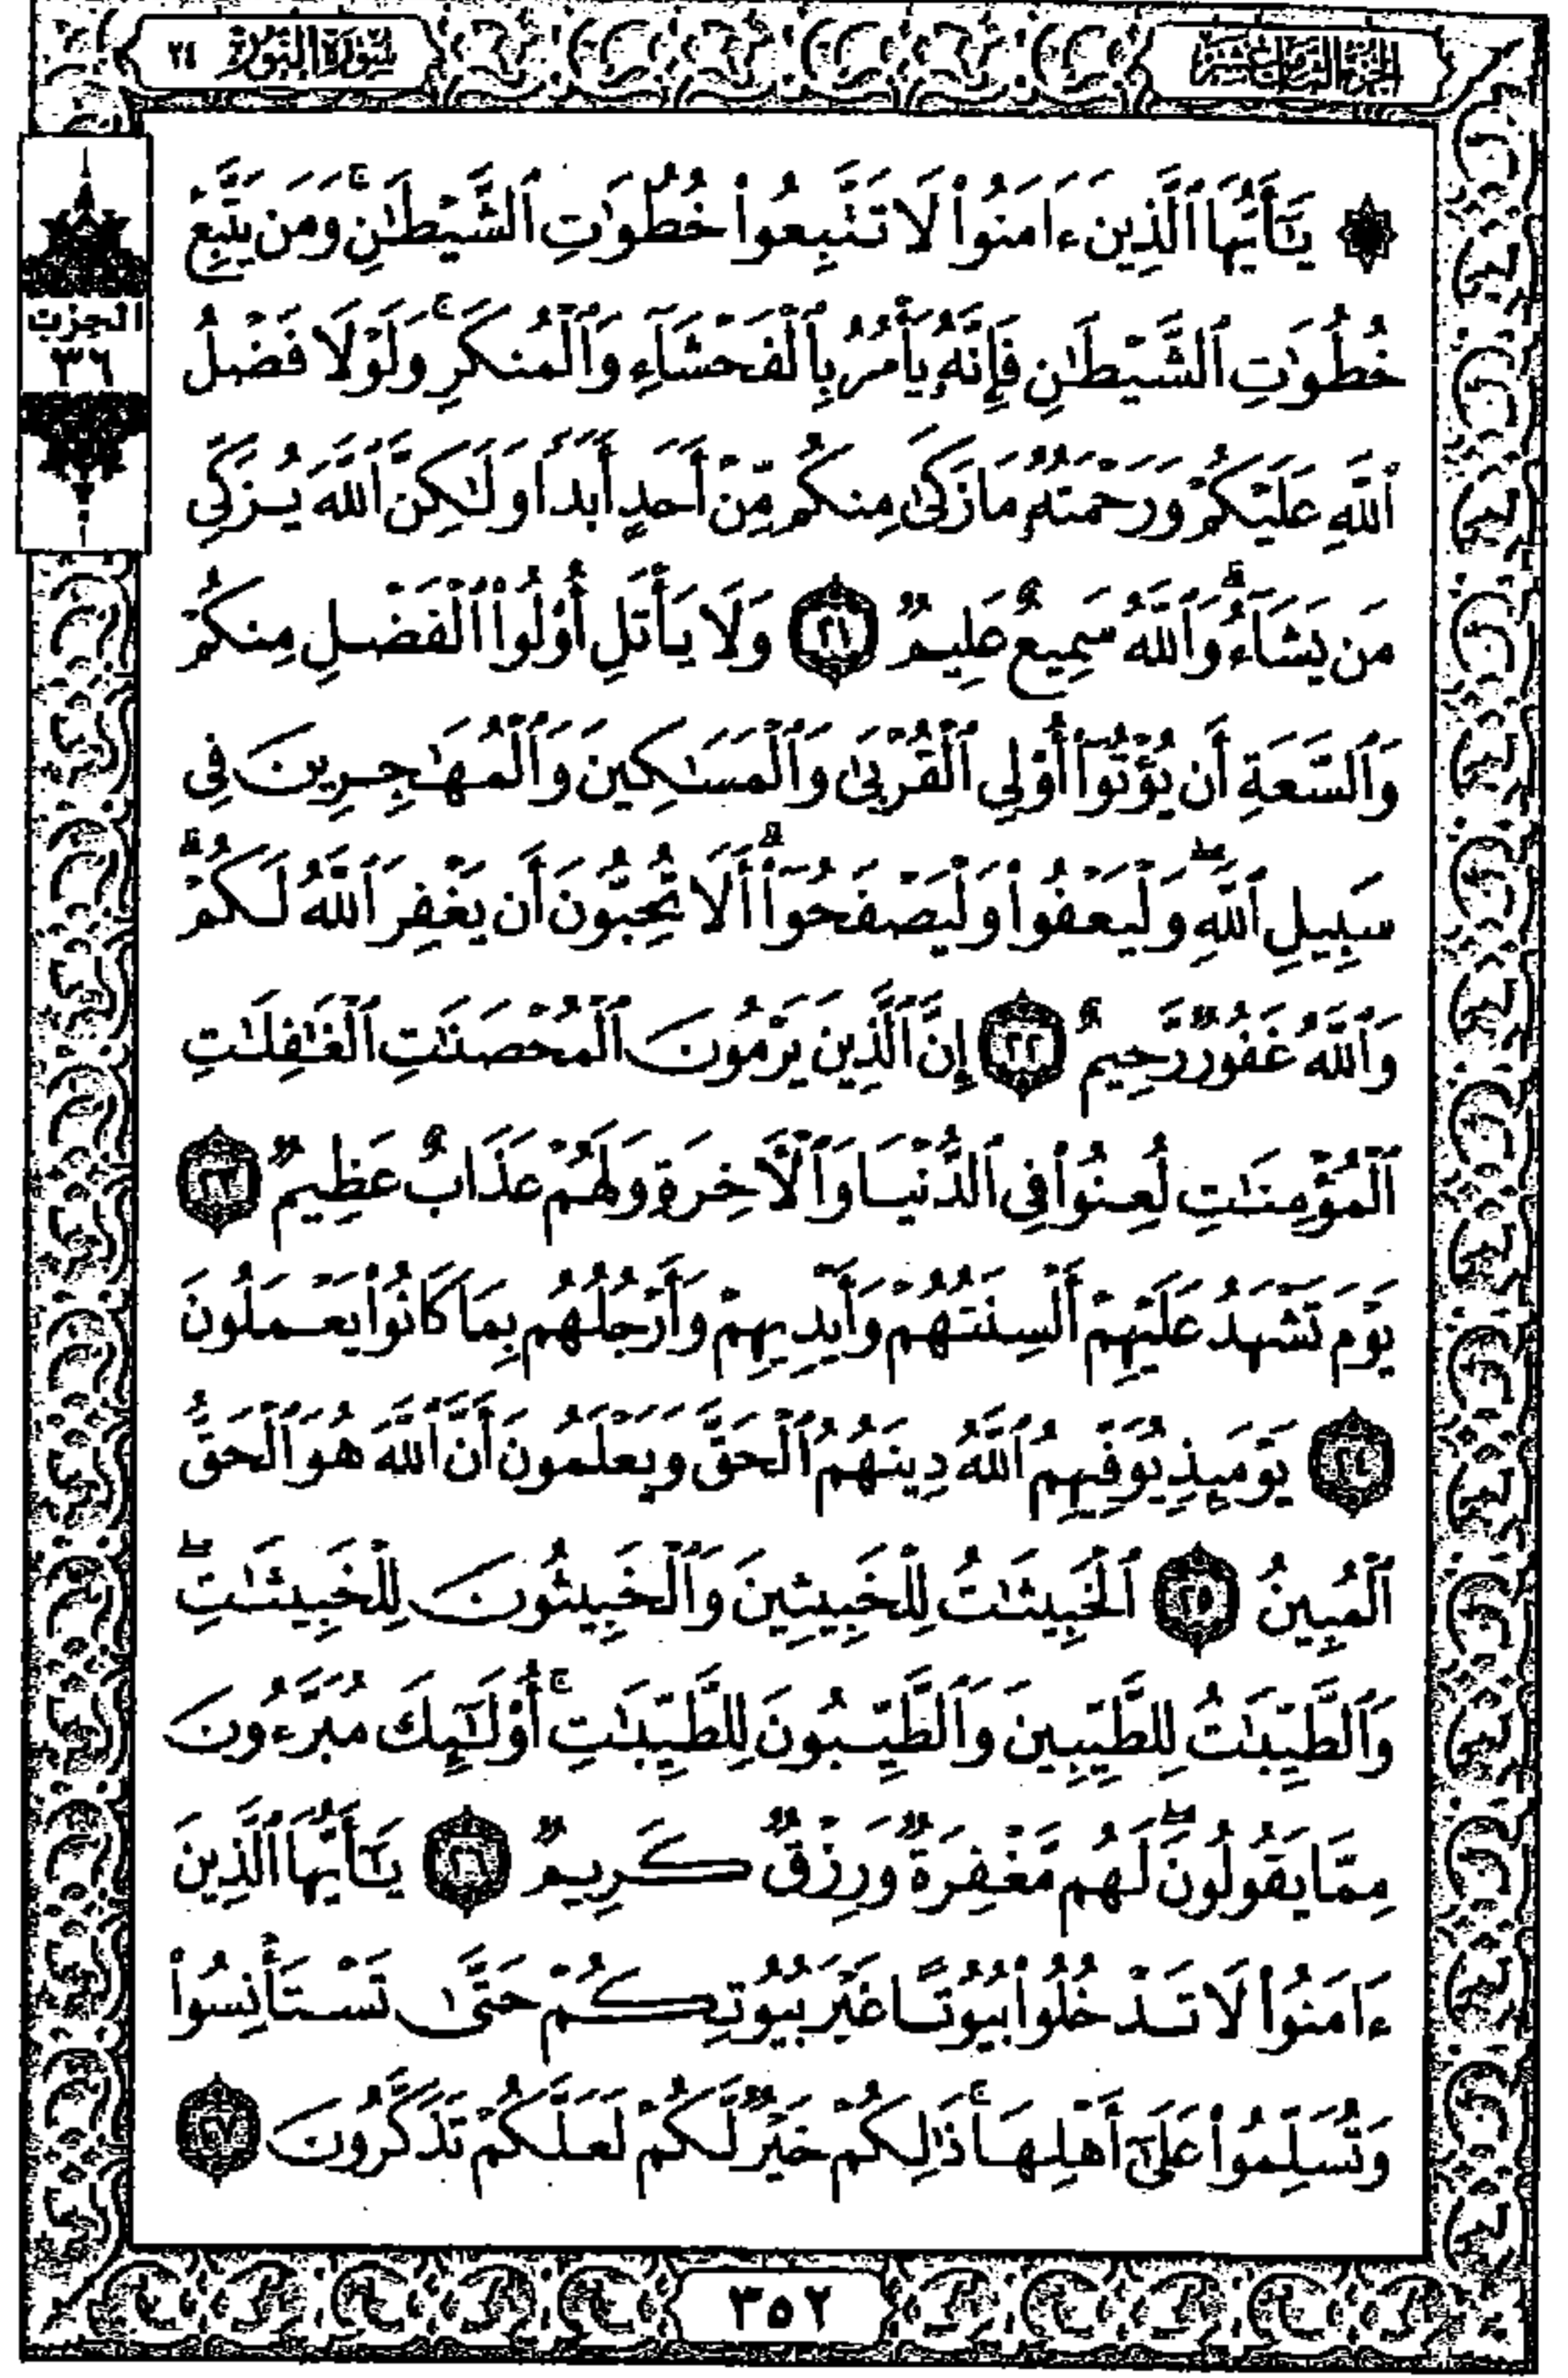 الجزء الثامن عشر
سورة النور ٢٤
الحزب
٣٦
۞ يَـٰٓأَيُّهَا ٱلَّذِينَ ءَامَنُوا۟ لَا تَتَّبِعُوا۟ خُطُوَٰتِ ٱلشَّيْطَـٰنِ ۚ وَمَن يَتَّبِعْ
خُطُوَٰتِ ٱلشَّيْطَـٰنِ فَإِنَّهُۥ يَأْمُرُ بِٱلْفَحْشَآءِ وَٱلْمُنكَرِ ۚ وَلَوْلَا فَضْلُ
ٱللَّهِ عَلَيْكُمْ وَرَحْمَتُهُۥ مَا زَكَىٰ مِنكُم مِّنْ أَحَدٍ أَبَدًا وَلَـٰكِنَّ ٱللَّهَ يُزَكِّى
مَن يَشَآءُ ۗ وَٱللَّهُ سَمِيعٌ عَلِيمٌ ٢١ وَلَا يَأْتَلِ أُو۟لُوا۟ ٱلْفَضْلِ مِنكُمْ
وَٱلسَّعَةِ أَن يُؤْتُوٓا۟ أُو۟لِى ٱلْقُرْبَىٰ وَٱلْمَسَـٰكِينَ وَٱلْمُهَـٰجِرِينَ فِى
سَبِيلِ ٱللَّهِ ۖ وَلْيَعْفُوا۟ وَلْيَصْفَحُوٓا۟ ۗ أَلَا تُحِبُّونَ أَن يَغْفِرَ ٱللَّهُ لَكُمْ ۗ
وَٱللَّهُ غَفُورٌ رَّحِيمٌ ٢٢ إِنَّ ٱلَّذِينَ يَرْمُونَ ٱلْمُحْصَنَـٰتِ ٱلْغَـٰفِلَـٰتِ
ٱلْمُؤْمِنَـٰتِ لُعِنُوا۟ فِى ٱلدُّنْيَا وَٱلْـَٔاخِرَةِ وَلَهُمْ عَذَابٌ عَظِيمٌ ٢٣
يَوْمَ تَشْهَدُ عَلَيْهِمْ أَلْسِنَتُهُمْ وَأَيْدِيهِمْ وَأَرْجُلُهُم بِمَا كَانُوا۟ يَعْمَلُونَ
٢٤ يَوْمَئِذٍ يُوَفِّيهِمُ ٱللَّهُ دِينَهُمُ ٱلْحَقَّ وَيَعْلَمُونَ أَنَّ ٱللَّهَ هُوَ ٱلْحَقُّ
ٱلْمُبِينُ ٢٥ ٱلْخَبِيثَـٰتُ لِلْخَبِيثِينَ وَٱلْخَبِيثُونَ لِلْخَبِيثَـٰتِ ۖ
وَٱلطَّيِّبَـٰتُ لِلطَّيِّبِينَ وَٱلطَّيِّبُونَ لِلطَّيِّبَـٰتِ ۚ أُو۟لَـٰٓئِكَ مُبَرَّءُونَ
مِمَّا يَقُولُونَ ۖ لَهُم مَّغْفِرَةٌ وَرِزْقٌ كَرِيمٌ ٢٦ يَـٰٓأَيُّهَا ٱلَّذِينَ
ءَامَنُوا۟ لَا تَدْخُلُوا۟ بُيُوتًا غَيْرَ بُيُوتِكُمْ حَتَّىٰ تَسْتَأْنِسُوا۟
وَتُسَلِّمُوا۟ عَلَىٰٓ أَهْلِهَا ۚ ذَٰلِكُمْ خَيْرٌ لَّكُمْ لَعَلَّكُمْ تَذَكَّرُونَ ٢٧
٣٥٢